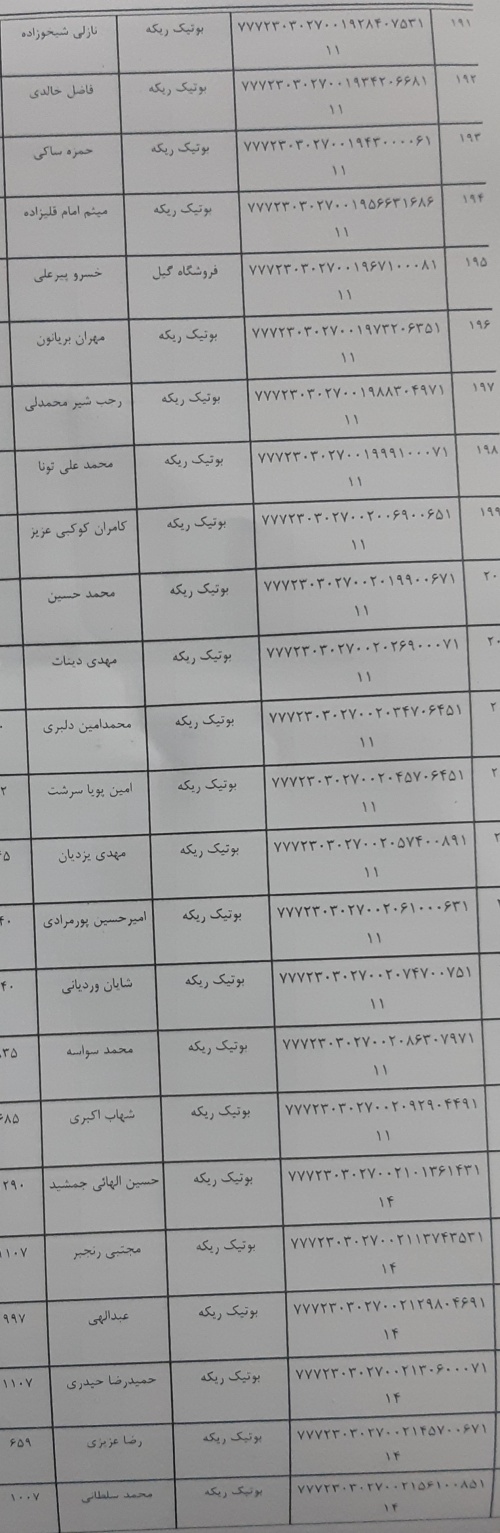 ۱۹۱ ۷۷۷۲۳۰۳۰۲۷۰۰۱۹۲۸۴۰۷۵۳۱ بوتیک ریکه نازلی شیخوزاده
۱۱
۱۹۲ ۷۷۷۲۳۰۳۰۲۷۰۰۱۹۳۴۲۰۶۶۸۱ بوتیک ریکه فاضل خالدی
۱۱
۱۹۳ ۷۷۷۲۳۰۳۰۲۷۰۰۱۹۴۳۰۰۰۰۶۱ بوتیک ریکه حمزه ساکی
۱۱
۱۹۴ ۷۷۷۲۳۰۳۰۲۷۰۰۱۹۵۶۶۳۱۶۸۶ بوتیک ریکه میثم امام قلیزاده
۱۱
۱۹۵ ۷۷۷۲۳۰۳۰۲۷۰۰۱۹۶۷۱۰۰۰۸۱ فروشگاه گیل خسرو پیرعلی
۱۱
۱۹۶ ۷۷۷۲۳۰۳۰۲۷۰۰۱۹۷۳۲۰۶۳۵۱ بوتیک ریکه مهران بریانون
۱۱
۱۹۷ ۷۷۷۲۳۰۳۰۲۷۰۰۱۹۸۸۳۰۴۹۷۱ بوتیک ریکه رجب شیر محمدلی
۱۱
۱۹۸ ۷۷۷۲۳۰۳۰۲۷۰۰۱۹۹۹۱۰۰۰۷۱ بوتیک ریکه محمد علی تونا
۱۱
۱۹۹ ۷۷۷۲۳۰۳۰۲۷۰۰۲۰۰۶۹۰۰۶۵۱ بوتیک ریکه کامران کوکبی عزیز
۱۱
۲۰ ۷۷۷۲۳۰۳۰۲۷۰۰۲۰۱۹۹۰۰۶۷۱ بوتیک ریکه محمد حسین
۱۱
۲۰ ۷۷۷۲۳۰۳۰۲۷۰۰۲۰۲۶۹۰۰۰۷۱ بوتیک ریکه مهدی دینات
۱۱
۲ ۷۷۷۲۳۰۳۰۲۷۰۰۲۰۳۴۷۰۶۴۵۱ بوتیک ریکه محمدامین دلبری ۰
۱۱
۲ ۷۷۷۲۳۰۳۰۲۷۰۰۲۰۴۵۷۰۶۴۵۱ بوتیک ریکه امین پویا سرشت ۲
۱۱
۲ ۷۷۷۲۳۰۳۰۲۷۰۰۲۰۵۷۴۰۰۸۹۱ بوتیک ریکه مهدی یزدیان ۴۵
۱۱
۷۷۷۲۳۰۳۰۲۷۰۰۲۰۶۱۰۰۰۶۳۱ بوتیک ریکه امیرحسین پورمرادی ۴۰
۱۱
۷۷۷۲۳۰۳۰۲۷۰۰۲۰۷۴۷۰۰۷۵۱ بوتیک ریکه شایان وردیانی ۴۰
۱۱
۷۷۷۲۳۰۳۰۲۷۰۰۲۰۸۶۳۰۷۹۷۱ بوتیک ریکه محمد سواسه ۳۵
۱۱
۷۷۷۲۳۰۳۰۲۷۰۰۲۰۹۲۹۰۴۴۹۱ بوتیک ریکه شهاب اکبری ۶۸۵
۱۱
۷۷۷۲۳۰۳۰۲۷۰۰۲۱۰۱۳۶۱۴۳۱ بوتیک ریکه حسین الهائی جمشید ۲۹۰
۱۴
۷۷۷۲۳۰۳۰۲۷۰۰۲۱۱۳۷۴۳۵۳۱ بوتیک ریکه مجتبی رنجبر ۱۱۰۷
۱۴
۷۷۷۲۳۰۳۰۲۷۰۰۲۱۲۹۸۰۴۶۹۱ بوتیک ریکه عبدالهی ۹۹۷
۱۴
۷۷۷۲۳۰۳۰۲۷۰۰۲۱۳۰۶۰۰۰۷۱ بوتیک ریکه حمیدرضا حیدری ۱۱۰۷
۱۴
۷۷۷۲۳۰۳۰۲۷۰۰۲۱۴۵۷۰۰۶۷۱ بوتیک ریکه رضا عزیزی ۶۵۹
۱۴
۷۷۷۲۳۰۳۰۲۷۰۰۲۱۵۶۱۰۰۸۵۱ بوتیک ریکه محمد سلطانی ۱۰۰۷
۱۴